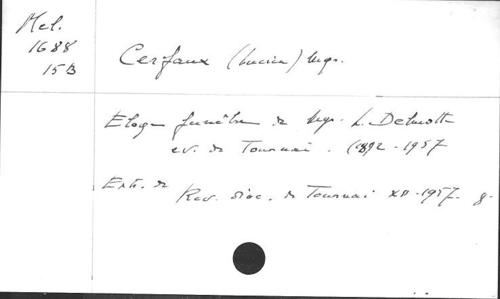 Mel.
1688
15B
Cerfaux (Lucien) Mgr.
Eloge funèbre de Mgr. L. Delmotte
ev. de Tournai. (1892-1957
Extr. de
Rev. dioc. de Tournai XII-1957. 8-